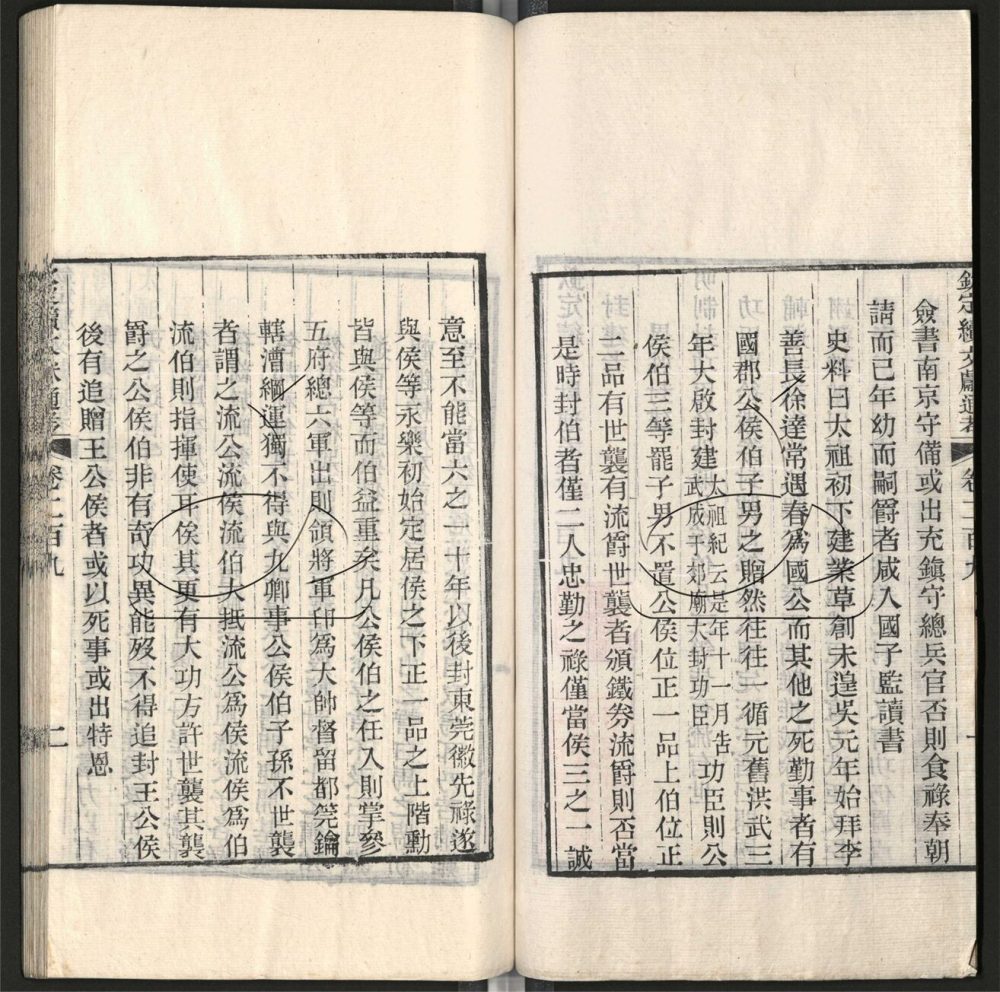 欽定續文獻通考 卷二百九
僉書南京守備或出充鎮守總兵官否則食祿奉朝
請而已年幼而嗣爵者咸入國子監讀書
史料曰太祖初下建業草創未遑吳元年始拜李
善長徐達常遇春為國公而其他之死勤事者有
國郡公侯伯子男之贈然往往一循元舊洪武三
年大啟封建太祖紀云是年十一月告武成于郊廟大封功臣功臣則公
侯伯三等罷子男不置公侯位正一品上伯位正
二品有世襲有流爵世襲者頒鐵券流爵則否當
是時封伯者僅二人忠勤之祿僅當侯三之一誠
意至不能當六之一十年以後封東莞徽先祿遂
與侯等永樂初始定居侯之下正一品之上階勳
皆與侯等而伯益重矣凡公侯伯之任入則掌參
五府總六軍出則領將軍印為大帥督留都筦鑰
轄漕綱運獨不得與九卿事公侯伯子孫不世襲
者謂之流公流侯流伯大抵流公為侯流侯為伯
流伯則指揮使耳俟其更有大功方許世襲其襲
爵之公侯伯非有奇功異能歿不得追封王公侯
後有追贈王公侯者或以死事或出特恩
卷二百九 二